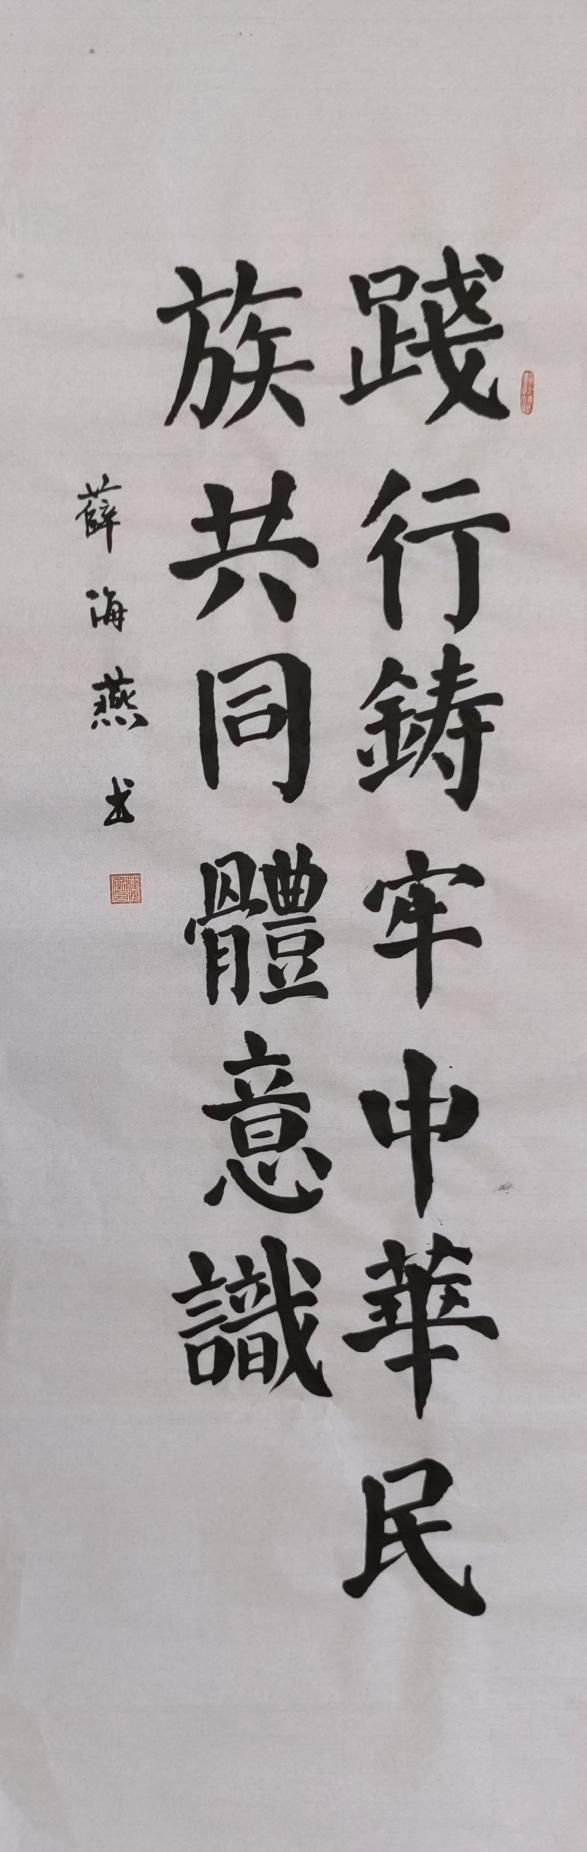 踐行鋳牢中華民
族共同體意識
薛海燕书